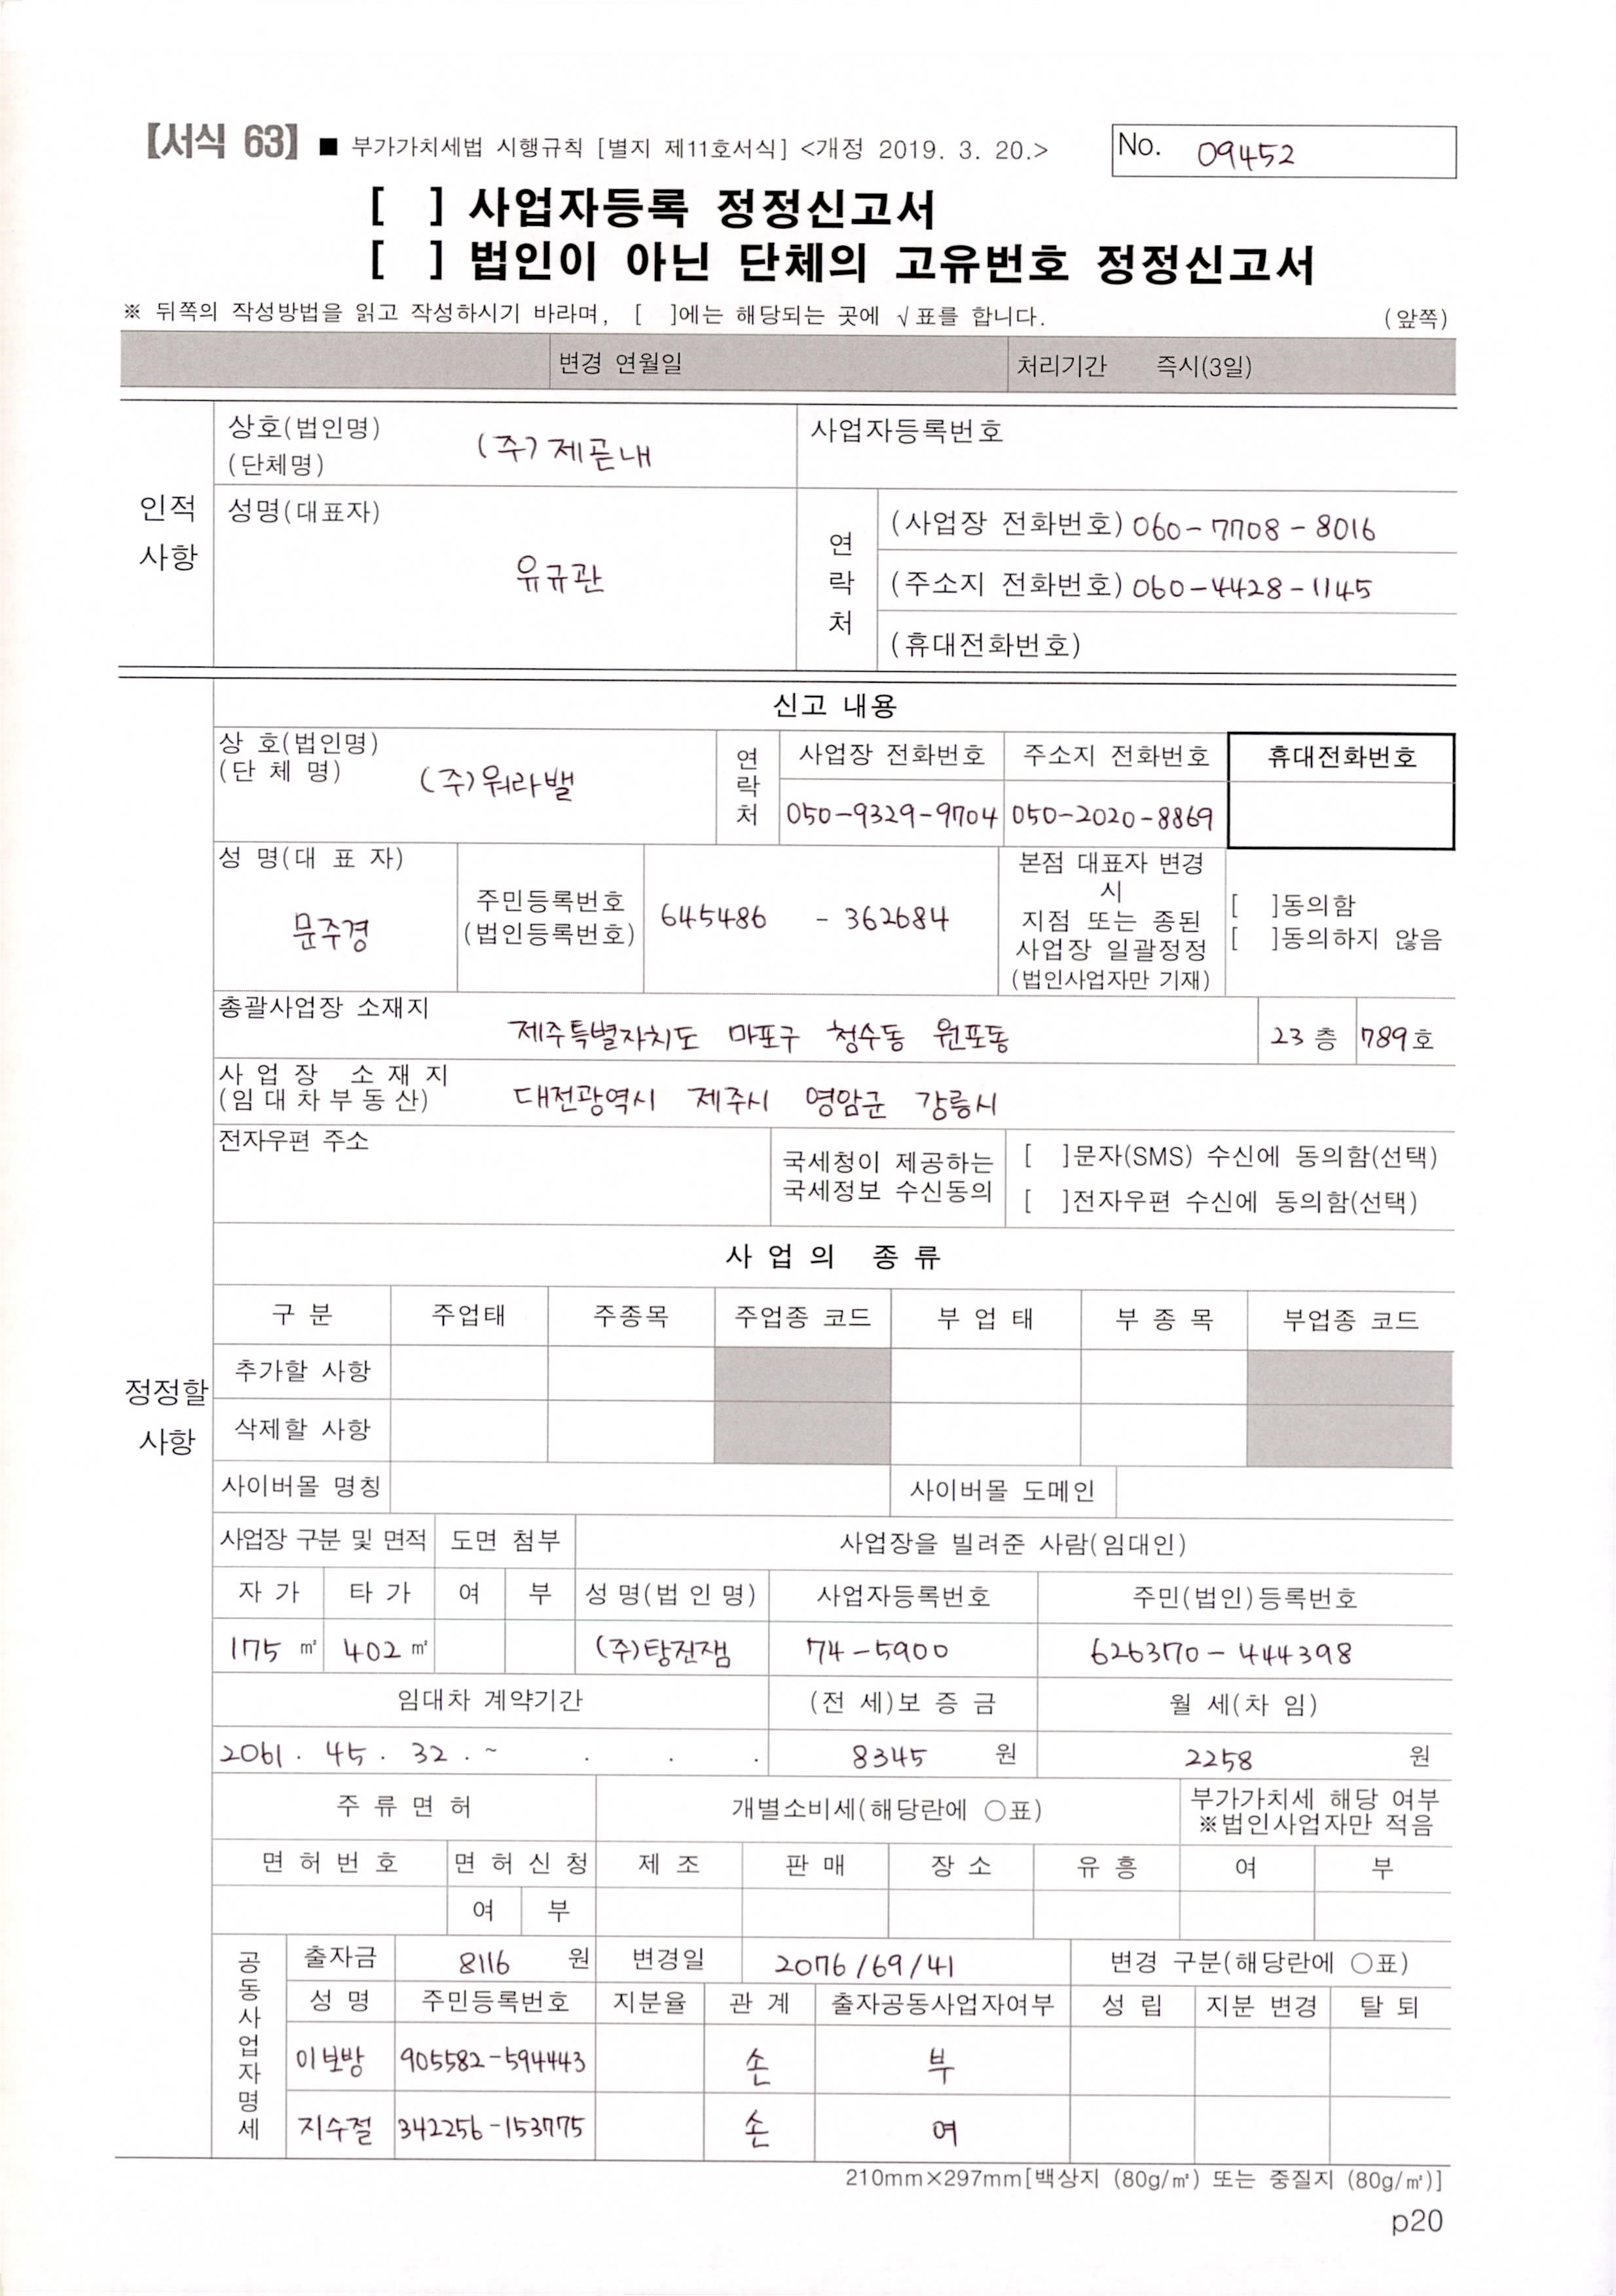 【서식 63】 ■ 부가가치세법 시행규칙 [별지 제11호서식] <개정 2019. 3. 20.>
No. 09452
[ ] 사업자등록 정정신고서
[ ] 법인이 아닌 단체의 고유번호 정정신고서
※ 뒤쪽의 작성방법을 읽고 작성하시기 바라며, [ ]에는 해당되는 곳에 √표를 합니다. (앞쪽)
변경 연월일 처리기간 즉시(3일)
인적
사항
상호(법인명)
(단체명)
(주)제곧내
사업자등록번호
성명(대표자)
유규관
연
락
처
(사업장 전화번호) 060-7708-8016
(주소지 전화번호) 060-4428-1145
(휴대전화번호)
정정할
사항
신고 내용
상 호(법인명)
(단 체 명)
(주)워라밸
연
락
처
사업장 전화번호 주소지 전화번호 휴대전화번호
050-9329-9704 050-2020-8869
성 명(대 표 자)
문주경
주민등록번호
(법인등록번호)
645486 - 362684
본점 대표자 변경
시
지점 또는 종된
사업장 일괄정정
(법인사업자만 기재)
[ ]동의함
[ ]동의하지 않음
총괄사업장 소재지
제주특별자치도 마포구 청수동 원포동 23 층 789호
사 업 장 소 재 지
(임대차부동산)
대전광역시 제주시 영암군 강릉시
전자우편 주소
국세청이 제공하는
국세정보 수신동의
[ ]문자(SMS) 수신에 동의함(선택)
[ ]전자우편 수신에 동의함(선택)
사 업 의 종 류
구 분 주업태 주종목 주업종 코드 부 업 태 부 종 목 부업종 코드
추가할 사항
삭제할 사항
사이버몰 명칭 사이버몰 도메인
사업장 구분 및 면적 도면 첨부 사업장을 빌려준 사람(임대인)
자 가 타 가 여 부 성 명(법 인 명) 사업자등록번호 주민(법인)등록번호
175 ㎡ 402 ㎡ (주)탕진잼 74-5900 626370-444398
임대차 계약기간 (전 세)보 증 금 월 세(차 임)
2061 . 45 . 32 . ~ . . . 8345 원 2258 원
주 류 면 허 개별소비세(해당란에 ○표) 부가가치세 해당 여부
※법인사업자만 적음
면 허 번 호 면 허 신 청 제 조 판 매 장 소 유 흥 여 부
여 부
공
동
사
업
자
명
세
출자금 8116 원 변경일 2076/69/41 변경 구분(해당란에 ○표)
성 명 주민등록번호 지분율 관 계 출자공동사업자여부 성 립 지분 변경 탈 퇴
이보방 905582-594443 손 부
지수절 342256-153775 손 여
210mm×297mm[백상지 (80g/㎡) 또는 중질지 (80g/㎡)]
p20